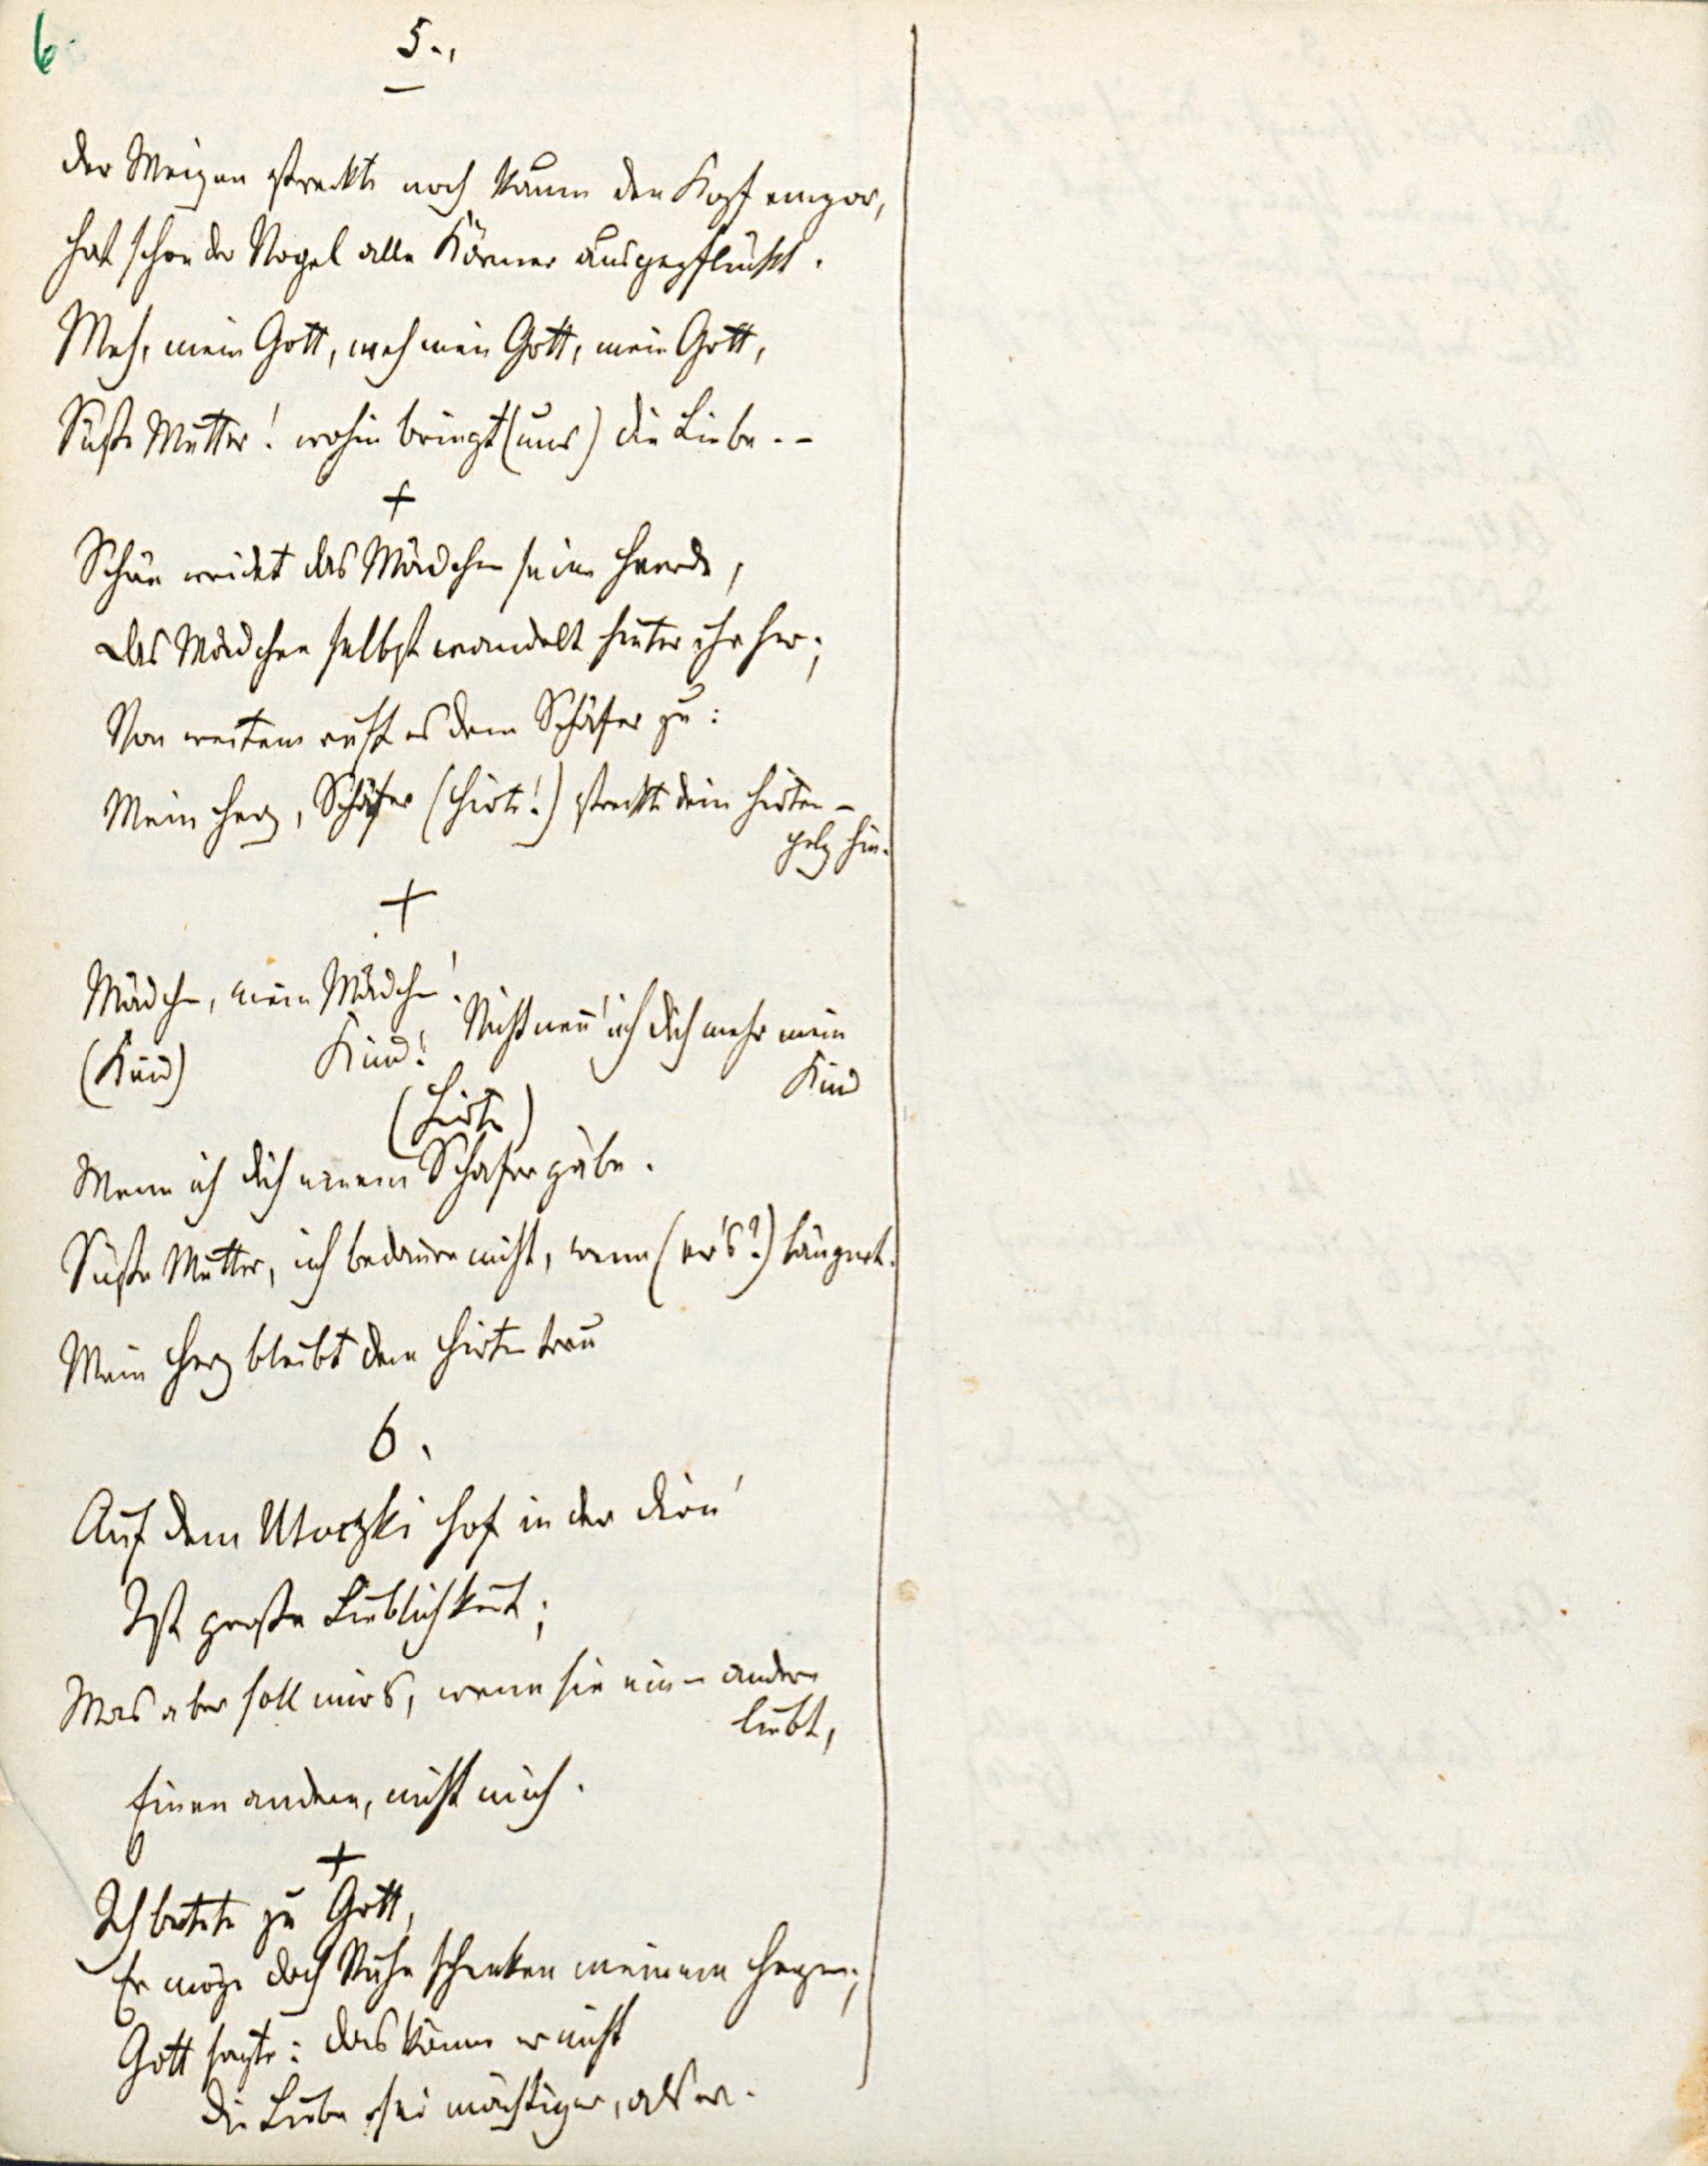 6.
5.,
Der Weizen streckte noch kaum den Kopf empor,
hat schon der Vogel alle Körner ausgepflückt.
Weh, mein Gott, weh mein Gott, mein Gott,
Süße Mutter! wohin bringt (uns) die Liebe.-
+
Schön weidet das Mädchen seine Heerde,
Das Mädchen selbst wandelt hinter ihr her;
Von weitem ruft es dem Schäfer zu:
Mein Herz, Schäfer (Hirte!) streckte dein Hirten-
pelz hin.
+
Mädchen, mein Mädchen!
(Kind) Kind! Nicht nenn' ich dich mehr mein
Kind
(Hirte)
Wenn ich dich einem Schafer gäbe.
Süße Mutter, ich bedaure nicht, wenn (er's?) läugnet.
Mein Herz bleibt dem Hirten treu
6.
Auf dem Utoczki Hof in der Dirn'
Ist große Lieblichkeit;
Was aber soll mirs, wenn sie einen andern
liebt,
Einen andern, nicht mich.
+
Ich betete zu Gott,
Er möge doch Ruhe schenken meinem Herzen;
Gott sagte: das könne er nicht
Die Liebe sei mächtiger, als er.